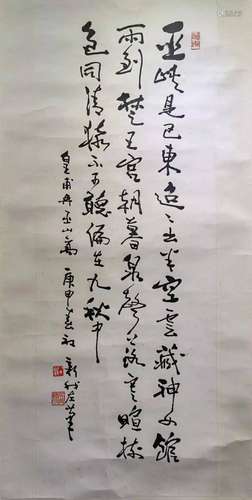 巫峽見巴東迢々出半空雲藏神女館
雨到楚王宮朝暮泉聲落寒暄樹
色同清猿不可聽偏在九秋中
皇甫冉巫山高 庚申春初 新我左筆